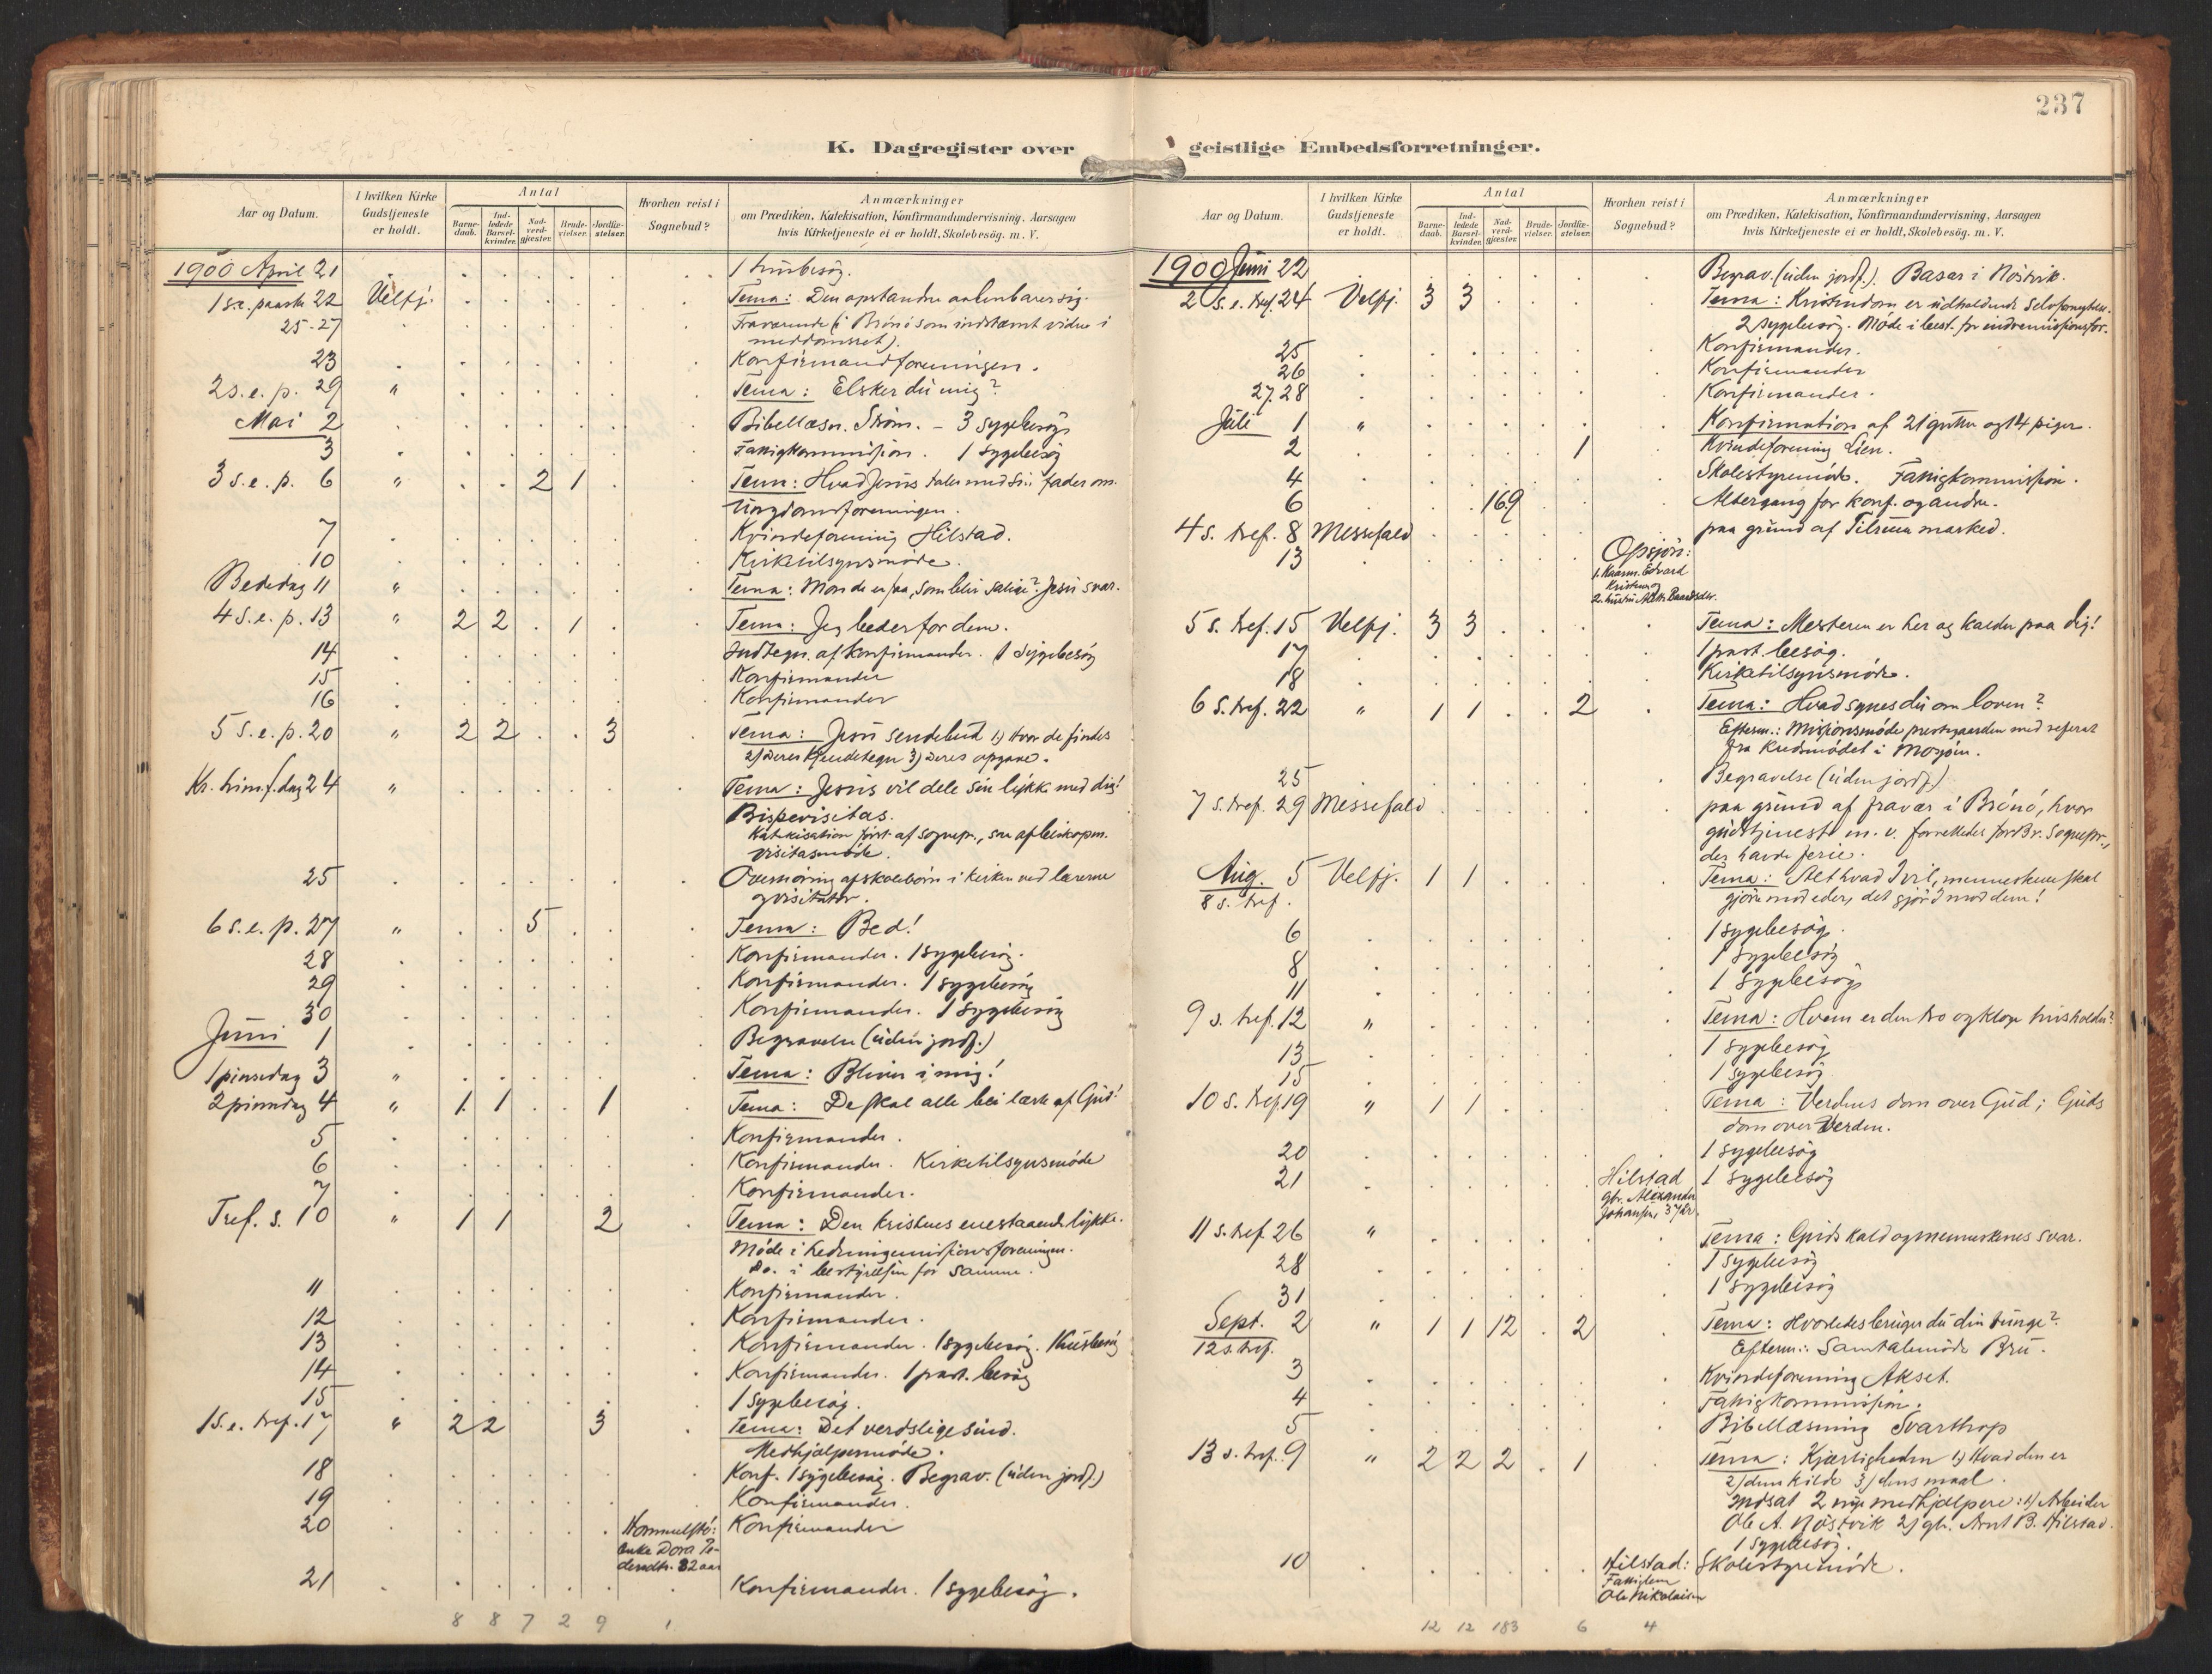 237
K. Dagregister over geistlige Embedsforretninger.
Aar og Datum. I hvilken Kirke Gudstjeneste er holdt. Antal Barne-daab. Ind-ledede Barsel-kvinder. Nad-verd-gjester. Brude-vielser. Jordfæ-stelser. Hvorhen reist i Sognebud? Anmærkninger om Prædiken, Katekisation, Konfirmandundervisning, Aarsagen hvis Kirketjeneste ei er holdt, Skolebesøg. m. V.
1900 April 21 1 husbesøg.
1 s.e. paaske 22 Velfj. Tema: Den opstandne aabenbarer sig.
25-27 Fraværende (i Brönö som indstæmt vidne i
meddomsret).
23 Konfirmandforeningen.
2 s.e.p. 29 " Tema: Elsker du mig?
Mai 2 Bibellæsn. Ström. - 3 sygebesög
3 Fattigkommission. 1 sygebesög
3 s.e.p. 6 " 2 1 Tema: Hvad Jesus taler med sin fader om.
Ungdomsforeningen.
7 Kvindeforening Hilstad.
10 Kirketilsynsmöde.
Bededag 11 " Tema: Mon de er faa, som blir salige? Jesu svar.
4 s.e.p. 13 " 2 2 1 Tema: Jeg beder for dem.
14 Indtegn. af konfirmander. 1 sygebesög
15 Konfirmander
16 Konfirmander
5 s.e.p. 20 " 2 2 3 Tema: Jesu sendebud 1) Hvor de findes
2) Deres kjendetegn 3) Deres opgave.
Kr. himmf. dag 24 " Tema: Jesus vil dele sin lykke med dig!
Bispevisitas.
Katekisation först af sognepr., saa af biskopen.
Visitasmöde.
25 Overhöring af skolebörn i kirken ved lærerne
og visitator.
6 s.e.p. 27 " 5 Tema: Bed!
28 Konfirmander. 1 sygebesög.
29 Konfirmander. 1 sygebesög
30 Konfirmander. 1 sygebesög
Juni 1 Begravelse (uden jordf.)
1 pinsedag 3 " Tema: Bliver i mig!
2 pinsedag 4 " 1 1 1 Tema: De skal alle bli lært af Gud!
5 Konfirmander.
6 Konfirmander. Kirketilsynsmöde
7 Konfirmander.
Tref. s. 10 " 1 1 2 Tema: Den kristnes enestaaende lykke.
Möde i hedningemissionsforeningen.
Do. i bestyrelsen for samme.
11 Konfirmander.
12 Konfirmander.
13 Konfirmander. 1 sygebesög. 1 husbesög
14 Konfirmander. 1 part. besög
15 1 sygebesög.
1 s.e. tref. 17 " 2 2 3 Tema: Det verdslige sind.
Medhjælpermöde.
18 Konf. 1 sygebesög. Begrav. (uden jordf.)
19 Konfirmander.
20 Hommelstö: Konfirmander
Enke Dora Pe-
dersdtr. 82 aar
21 Konfirmander. 1 sygebesög.
8 8 7 2 9 1
Aar og Datum. I hvilken Kirke Gudstjeneste er holdt. Antal Barne-daab. Ind-ledede Barsel-kvinder. Nad-verd-gjæster. Brude-vielser. Jordfæ-stelser. Hvorhen reist i Sognebud? Anmærkninger om Prædiken, Katekisation, Konfirmandundervisning, Aarsagen hvis Kirketjeneste ei er holdt, Skolebesøg. m. V.
1900 Juni 22 Begrav. (uden jordf.). Basar i Nöstvik.
2 s.e. tref. 24 Velfj. 3 3 Tema: Kristendom er udholdende selvfornegtelse.
2 sygebesög. Möde i best. for indremissionsfor.
25 Konfirmander.
26 Konfirmander
27.28 Konfirmander.
Juli 1 " Konfirmation af 21 gutter og 14 piger.
2 1 Kvindeforening Lien.
4 Skolestyremöde. Fattigkommission.
6 169 Altergang for konf. og andre.
4 s. tref. 8 Messefald paa grund af Tilrem marked.
13 Opsjön:
1. Kaarm. Edvard
Kristensen
2. hustru Baardsdtr.
5 s. tref. 15 Velfj. 3 3 Tema: Mesteren er her og kalder paa dig!
17 1 part. besög.
18 Kirketilsynsmöde.
6 s. tref. 22 " 1 1 2 Tema: Hvad synes du om loven?
Efterm.: Missionsmöde prestegaarden med referat
fra kredsmödet i Mosjöen.
25 Begravelse (uden jordf.)
7 s. tref. 29 Messefald paa grund af fravær i Brönö, hvor
gudstjeneste m. v. forrettedes for Br. sognepr.,
der havde ferie.
Aug. 5 Velfj. 1 1 Tema: Alt hvad I vil, menneskene skal
8 s. tref. gjöre mod eder, det gjör I mod dem!
6 1 sygebesög.
8 1 sygebesög
11 1 sygebesög
9 s. tref. 12 " Tema: Hvem er den tro og kloge husholder?
13 1 sygebesög
15 1 sygebesög.
10 s. tref. 19 " 1 1 Tema: Verdens dom over Gud; Guds
dom over Verden.
20 1 sygebesög
21 Hilstad 1 sygebesög
gbr. Alexander
Johansen, 37 aar.
11 s. tref. 26 " Tema: Guds kald og menneskenes svar.
28 1 sygebesög
31 1 sygebesög
Sept. 2 " 1 1 12 2 Tema: Hvorledes bruger du din tunge?
12 s. tref. Efterm.: Samtalemöde Bru.
3 Kvindeforening Akset.
4 Fattigkommission.
5 Bibellæsning Svarthop
13 s. tref. 9 " 2 2 2 1 Tema: Kjærligheden 1) Hvad den er
2) dens kilde 3) dens maal.
Indsat 2 nye medhjælpere: 1) Arbeider
Ole A. Nöstvik 2) gbr. Arnt B. Hilstad.
1 sygebesög.
10 Hilstad: Skolestyremöde.
Fattiglem
Ole Nikolaisen
12 12 183 6 4